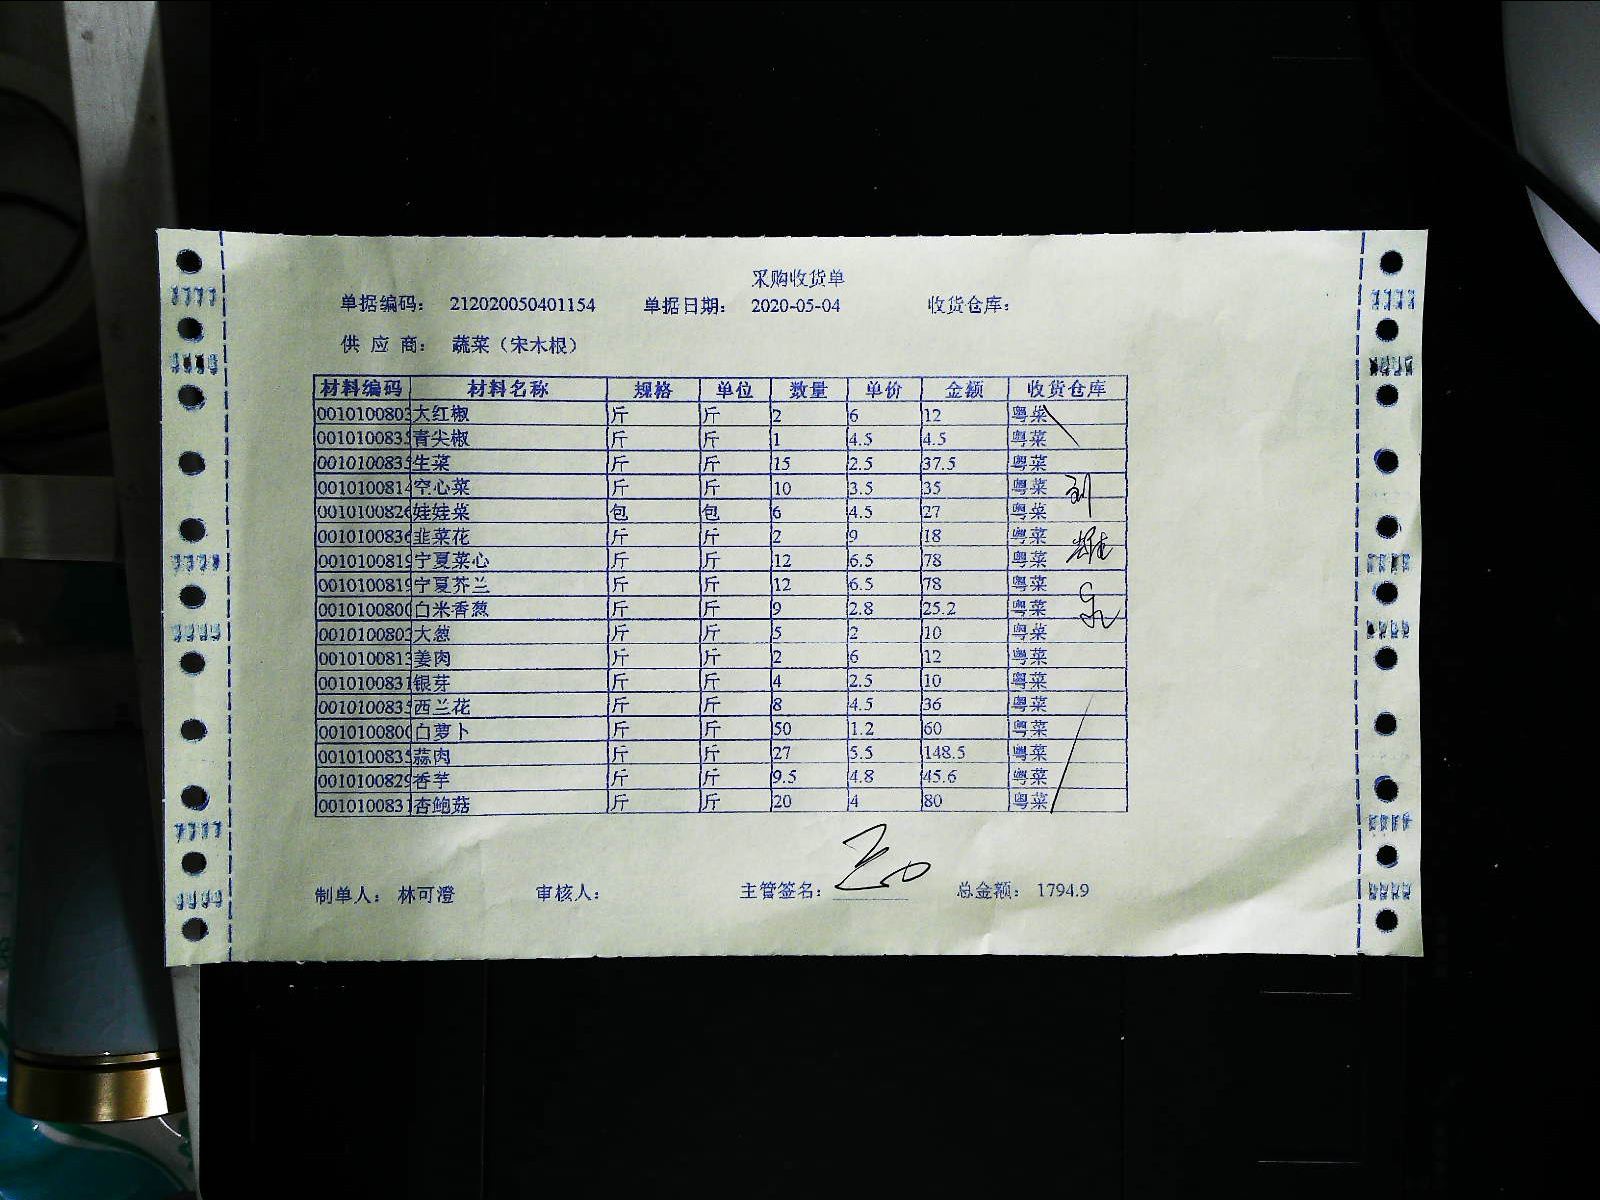 采购收货单
单据编码： 212020050401154 单据日期： 2020-05-04 收货仓库：
供 应 商： 蔬菜（宋木根）
材料编码 材料名称 规格 单位 数量 单价 金额 收货仓库
0010100803 大红椒 斤 斤 2 6 12 粤菜
0010100835 青尖椒 斤 斤 1 4.5 4.5 粤菜
0010100835 生菜 斤 斤 15 2.5 37.5 粤菜
0010100814 空心菜 斤 斤 10 3.5 35 粤菜
0010100826 娃娃菜 包 包 6 4.5 27 粤菜
0010100836 韭菜花 斤 斤 2 9 18 粤菜
0010100819 宁夏菜心 斤 斤 12 6.5 78 粤菜
0010100819 宁夏芥兰 斤 斤 12 6.5 78 粤菜
0010100800 白米香葱 斤 斤 9 2.8 25.2 粤菜
0010100803 大葱 斤 斤 5 2 10 粤菜
0010100813 姜肉 斤 斤 2 6 12 粤菜
0010100831 银芽 斤 斤 4 2.5 10 粤菜
0010100835 西兰花 斤 斤 8 4.5 36 粤菜
0010100800 白萝卜 斤 斤 50 1.2 60 粤菜
0010100835 蒜肉 斤 斤 27 5.5 148.5 粤菜
0010100829 香芋 斤 斤 9.5 4.8 45.6 粤菜
0010100831 杏鲍菇 斤 斤 20 4 80 粤菜
制单人： 林可澄 审核人： 主管签名： 总金额： 1794.9